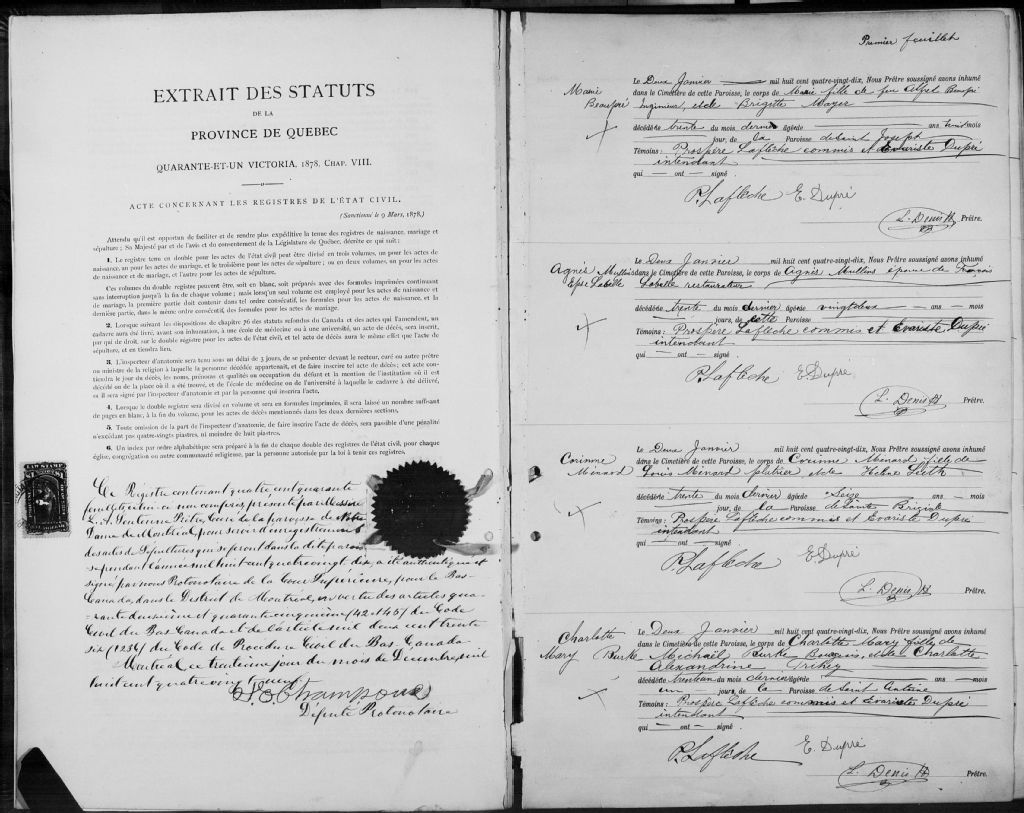 EXTRAIT DES STATUTS
DE LA
PROVINCE DE QUEBEC
QUARANTE-ET-UN VICTORIA, 1878, CHAP. VIII.
ACTE CONCERNANT LES REGISTRES DE L'ÉTAT CIVIL.
(Sanctionné le 9 Mars, 1878.)
Attendu qu'il est opportun de faciliter et de rendre plus expéditive la tenue des registres de naissance, mariage et
sépulture ; Sa Majesté par et de l'avis et du consentement de la Législature de Québec, décrète ce qui suit :
1. Le registre tenu en double pour les actes de l'état civil peut être divisé en trois volumes, un pour les actes de
naissance, un pour les actes de mariage, et le troisième pour les actes de sépulture ; ou en deux volumes, un pour les actes
de naissance et de mariage, et l'autre pour les actes de sépulture.
Ces volumes du double registre peuvent être, soit en blanc, soit préparés avec des formules imprimées continuant
sans interruption jusqu'à la fin de chaque volume ; mais lorsqu'un seul volume est employé pour les actes de naissance et
de mariage, la première partie doit contenir dans tel ordre consécutif, les formules pour les actes de naissance, et la
dernière partie, dans le même ordre consécutif, des formules pour les actes de mariage.
2. Lorsque suivant les dispositions de chapitre 76 des statuts refondus du Canada et des actes qui l'amendent, un
cadavre aura été livré, avant son inhumation, à une école de médecine ou à une université, un acte de décès, sera inscrit,
par qui de droit, sur le double registre pour les actes de l'état civil, et tel acte de décès aura le même effet que l'acte de
sépulture, et en tiendra lieu.
3. L'inspecteur d'anatomie sera tenu sous un délai de 3 jours, de se présenter devant le recteur, curé ou autre prêtre
ou ministre de la religion à laquelle la personne décédée appartenait, et de faire inscrire tel acte de décès ; cet acte con-
tiendra le jour du décès, les noms, prénoms et qualités ou occupation du défunt et la mention de l'institution où il est
décédé ou de la place où il a été trouvé, et de l'école de médecine ou de l'université à laquelle le cadavre a été délivré,
et il sera signé par l'inspecteur d'anatomie et par la personne qui inscrira l'acte.
4. Lorsque le double registre sera divisé en volume et sera en formules imprimées, il sera laissé un nombre suffisant
de pages en blanc, à la fin du volume, pour les actes de décès mentionnés dans les deux dernières sections.
5. Toute omission de la part de l'inspecteur d'anatomie, de faire inscrire l'acte de décès, sera passible d'une pénalité
n'excédant pas quatre-vingts piastres, ni moindre de huit piastres.
6. Un index par ordre alphabétique sera préparé à la fin de chaque double des registres de l'état civil, pour chaque
église, congrégation ou autre communauté religieuse, par la personne autorisée par la loi à tenir ces registres.
LAW STAMP
Ce Registre contenant quatre cent quarante
feuillets celui-ci non compris présenté par Messire
L. A. Sentenne Prêtre, Curé de la paroisse de Notre
Dame de Montréal, pour servir d'enregistrement
des actes de Sépultures qui se feront dans la dite paroisse
pendant l'année mil huit cent quatre vingt dix, a été authentiqué et
signé par nous Protonotaire de la Cour Supérieure, pour le Bas-
Canada, dans le District de Montréal, en vertu des articles qua-
rante deuxième et quarante cinquième (42 et 45) du Code
Civil du Bas Canada et de l'article mil deux cent trente
six (1236) du Code de Procédure Civil du Bas Canada
Montréal ce trentième jour du mois de Décembre mil
huit cent quatre vingt neuf
Député Protonotaire
Premier feuillet
Marie Beaupré
Le Deux Janvier mil huit cent quatre-vingt-dix, Nous Prêtre soussigné avons inhumé
dans le Cimetière de cette Paroisse, le corps de Marie fille de feu Alfred Beaupré
Engineur, et de Brigitte Mayer
décédée trente du mois dernier âgée de ans huit mois
jour, de la Paroisse de Saint Joseph
Témoins : Prospère Laflèche commis et Evariste Dupré
intendant
qui — ont — signé .
P. Laflèche E. Dupré
L. Denis Prêtre.
Agnès Mullins
Epse Labelle
Le Deux Janvier mil huit cent quatre-vingt-dix, Nous Prêtre soussigné avons inhumé
dans le Cimetière de cette Paroisse, le corps de Agnès Mullins épouse de François
Labelle restaurateur
décédée trente du mois dernier âgée de vingt deux — ans — mois
jours, de cette Paroisse
Témoins : Prospère Laflèche commis et Evariste Dupré
intendant
qui — ont — signé .
P. Laflèche E. Dupré
L. Denis Prêtre.
Corinne
Ménard
Le Deux Janvier mil huit cent quatre-vingt-dix, Nous Prêtre soussigné avons inhumé
dans le Cimetière de cette Paroisse, le corps de Corinne Ménard fille de
Louis Ménard plâtrier et de Hélène
décédée trente du mois dernier âgée de Seize ans — mois
jour, de la Paroisse de Sainte Brigide
Témoins : Prospère Laflèche commis et Evariste Dupré
intendant
qui — ont — signé .
P. Laflèche E. Dupré
L. Denis Prêtre.
Charlotte
Mary Burke
Le Deux Janvier mil huit cent quatre-vingt-dix, Nous Prêtre soussigné avons inhumé
dans le Cimetière de cette Paroisse, le corps de Charlotte Mary fille de
Michaël Burke Bourgeois, et de Charlotte
Alexandrine
décédée trente un du mois dernier âgée de ans — mois
un jours, de la Paroisse de Saint Antoine
Témoins : Prospère Laflèche commis et Evariste Dupré
intendant
qui — ont — signé .
P. Laflèche E. Dupré
L. Denis Prêtre.